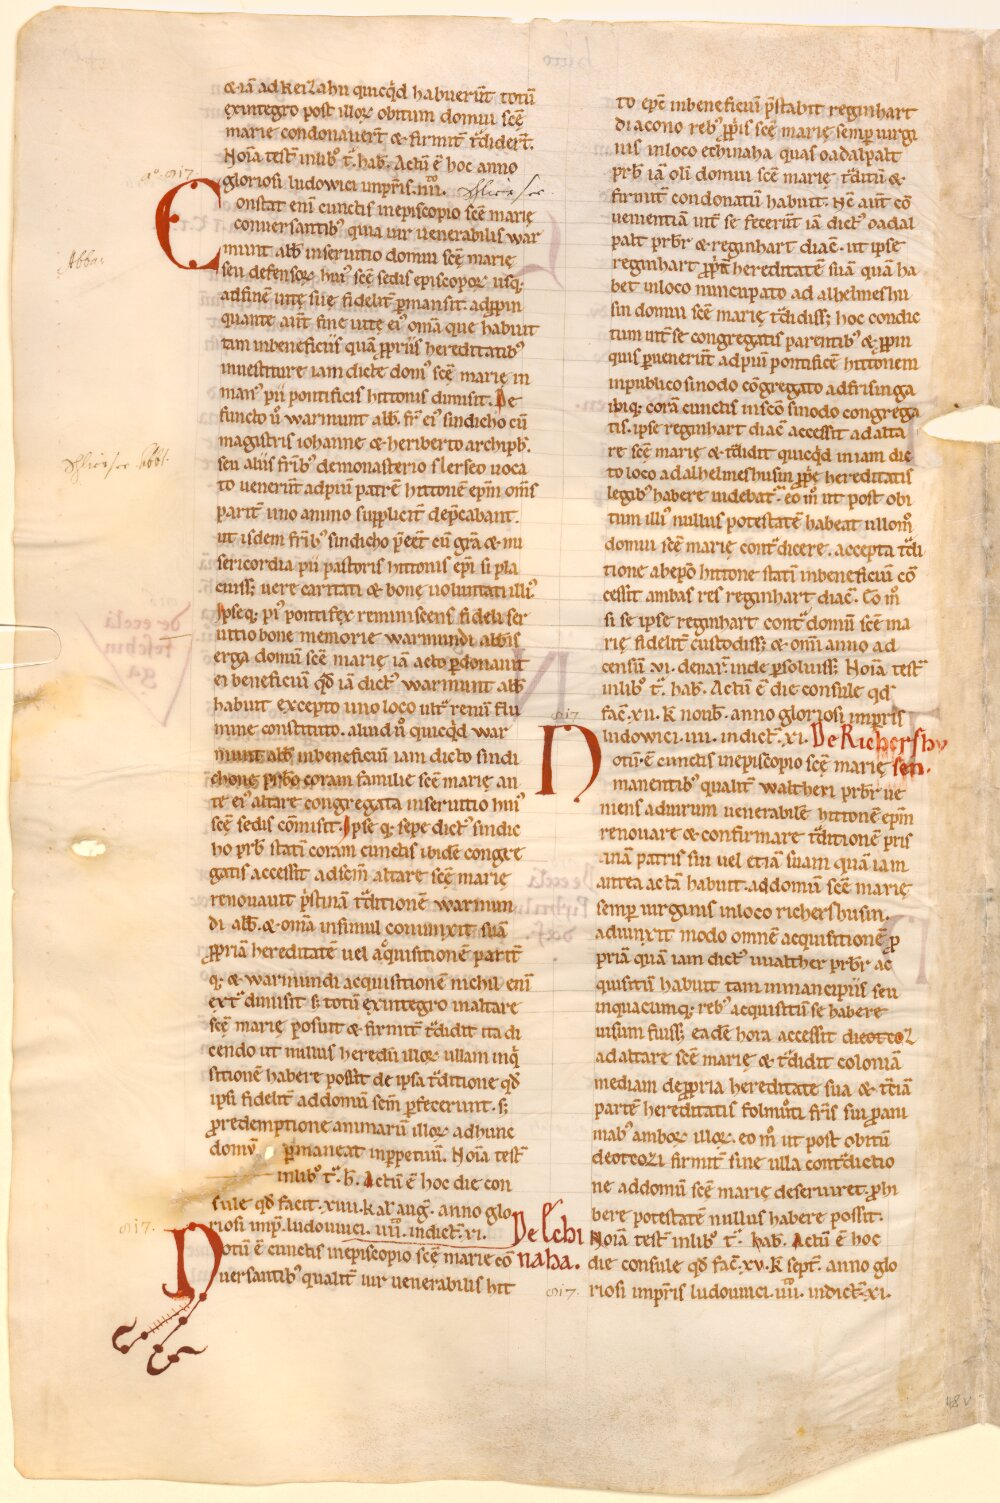 &iā ad keiZahu quicq̊d habuerūt totū
exintegro post illoꝝ obitum domui scę̄
marie condonauert̄ & firmit̄ t͛diderť.
Noīa test͛ inlib᷒ t͛. hab͛. Actū ē hoc anno
gloriosi ludowici imp̄ris. iiii. Schlierser
onstat enī cunctis inepiscopio scę̄ marię
conuersantib᷒ quia uir uenerabilis war
munt abb̄ inseruitio domui scę̄ marię
seu defensoꝝ hui᷒ scę̄ sedis episcopoꝝ usq;
adfinē uitę sue fidelit̄ ꝑmansit. adꝓpin
quante aūt fine uitę ei᷒ om̄a que habuit
tam inbeneficiis quā ꝓpriis hereditatib᷒
inuestiture iam dicte dom᷒ scę̄ marię in
man᷒ pii pontificis hittonis dimisit. De
functo ů warmunt abb̄. fr̄ ei᷒ sindicho cū
magistris iohanne & heriberto archipb̄.
seu aliis fr̄ib᷒ demonasterio slerseo uoca
to uenerūt adpiū patrē hittonē epm̄ om̄s
parit̄ uno animo supplicit̄ dep̄cabant͛.
ut isdem fr̄ib᷒ sindicho p̄eēt cū gr̄a & mi
sericordia pii pastoris hittonis ep̄i si pla
cuiss; uere caritati & bonę uoluntati illi᷒
Ipseq; pi᷒ pontifex reminiscens fideli ser
uitio bone memorie warmundi abb̄is
erga domū scę̄ marię iā acto ꝑdonauit
ei beneficiū qd̄ iā dict᷒ warmunt abb̄
habuit excepto uno loco ult͛ renū flu
mine constituto. aliud ů quicq̊d war
munt abb̄ inbeneficiū iam dicto sindi
chone prb̄o coram familie scę̄ marię an
te ei᷒ altare congregata inseruitio hui᷒
scę̄ sedis cōmisit. Ipse q; sepe dict᷒ sindic
ho prb̄ statī coram cunctis ibidē congre
gatis accessit adsēm altare scę̄ marię
renouauit p̄stinā t͛ditionē warmun
di abb̄. & om̄a insimul coniunxit suā
ꝓpriā hereditatē uel aq̊uisitionē parit̄
q; & warmundi acquisitionē nichil enī
ext͛ dimisit s; totū exintegro inaltare
scę̄ marię posuit & firmit̄ t͛didit ita di
cendo ut nullus heredū illoꝝ ullam inq̊
sitionē habere possit de ipsa t͛ditione qd̄
ipsi fidelit̄ addomū sēm ꝑfecerunt. s;
ꝓredemptione animarū illoꝝ adhunc
domū ꝑmaneat inꝑpetuū. Noīa test͛
inlib᷒ t͛. h̄. Actū ē hoc die con
sule qd̄ facit. xuii. kal͛ aug̃. anno glo
riosi imp͛. ludouuici. iiii. indict͛. xi. De Echi
otū ē cunctis inepiscopio scę̄ marie cō naha.
uersantib᷒ qualit̄ uir uenerabilis hit
to epc̄ inbeneficiū p̄stabit reginhart
diacono reb᷒ ꝓp̄is scę̄ marię semꝑ uirgi
nis inloco echinaha quas oadalpalt
prb̄ iā olī domui scę̄ marię t͛ditū &
firmit̄ condonatū habuit. Hc̄ aūt cō
uenientiā int͛ se fecerūt iā dict᷒ oadal
palt prb͛r & reginhart diac̄. ut ipse
reginhart ꝓpͥā hereditatē suā quā ha
bet inloco nuncupato ad alhelmeshu
sin domui scę̄ marię t͛didiss; hoc condic
tum int͛se congregatis parentib᷒ & ꝓpin
quis ꝑuenerūt adpiū pontificē hittonem
inpublico sinodo cōgregato ad frisinga
ibiq; corā cunctis inscō sinodo congrega
tis. ipse reginhart diac̄ accessit ad alta
re scę̄ marię & t͛didit quicq̊d in iam dic
to loco ad alhelmeshusin ꝓpͥę hereditatis
legib᷒ habere uidebat͛. eo m̊ ut post obi
tum illi᷒ nullus potestatē habeat ullom̊
domui scę̄ marię cont͛dicere. accepta t͛di
tione abepō hittone statī inbeneficiū cō
cessit ambas res reginhart diac̄. Eo m̊
si se ipse reginhart cont͛ domū scę̄ ma
rię fidelit̄ custodiss; & om̄i anno ad
censū. ui. denar͛ inde ꝑsoluiss; Noīa test͛
inlib᷒ t͛. hab͛. Actū ē die consule qd̄
fac̄. xii. k͛ noub͛. anno gloriosi imp̄ris
ludowici. iiii. indict͛. xi. De Richershu
otū. ē cunctis inepiscopio scę̄ marię sen.
manentib᷒ qualit̄ waltheri prb͛r ue
niens aduirum uenerabilē hittonē epm̄
renouare & confirmare t͛ditionē pris
tinā patris sui uel etiā suam quā iam
antea actā habuit. addomū scę̄ marię
semꝑ uirginis inloco richershusin.
adiunxit modo omnē acquisitionē ꝓ
priā quā iam dict᷒ uualther prb͛r ac
quisitū habuit tam inmancipiis seu
inquacumq; reb᷒ acquisitū se habere
uisum fuiss; eadē hora accessit dieoteoZ
ad altare scę̄ marię & t͛didit coloniā
mediam deꝓpria hereditate sua & tͨiā
partē hereditatis folmůti fr̄is sui ꝓani
mab᷒ amboꝝ illoꝝ. eo m̊ ut post obitū
deoteoZi firmit̄ sine ulla cont͛dictio
ne addomū scę̄ marię deseruiret. ꝓhi
bere potestatē nullus habere possit.
Noīa test͛ inlib᷒ t͛. hab͛. Actū ē hoc
die consule qd̄ fac̄. xv. k͛ sept͛. anno glo
riosi imp̄ris ludouuici. iiii. indict͛. xi.
817.
Abbas
Schlierser Abbt.
817.
817
817.
48v